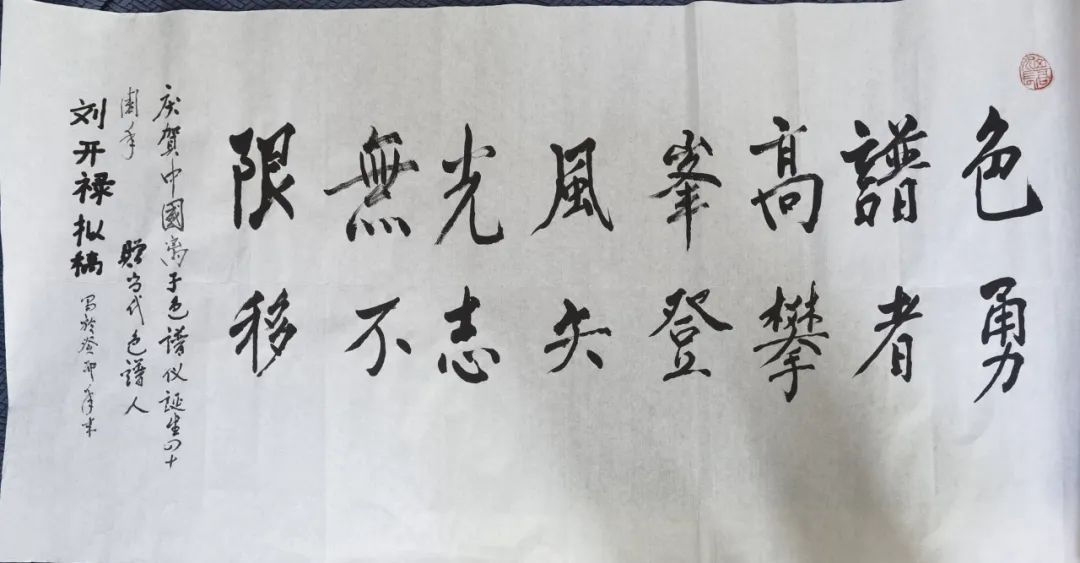 色譜高峯風光無限
勇者攀登矢志不移
庆贺中國离子色譜仪誕生四十
周年
贈当代色譜人
刘开禄拟稿 写於癸卯年末